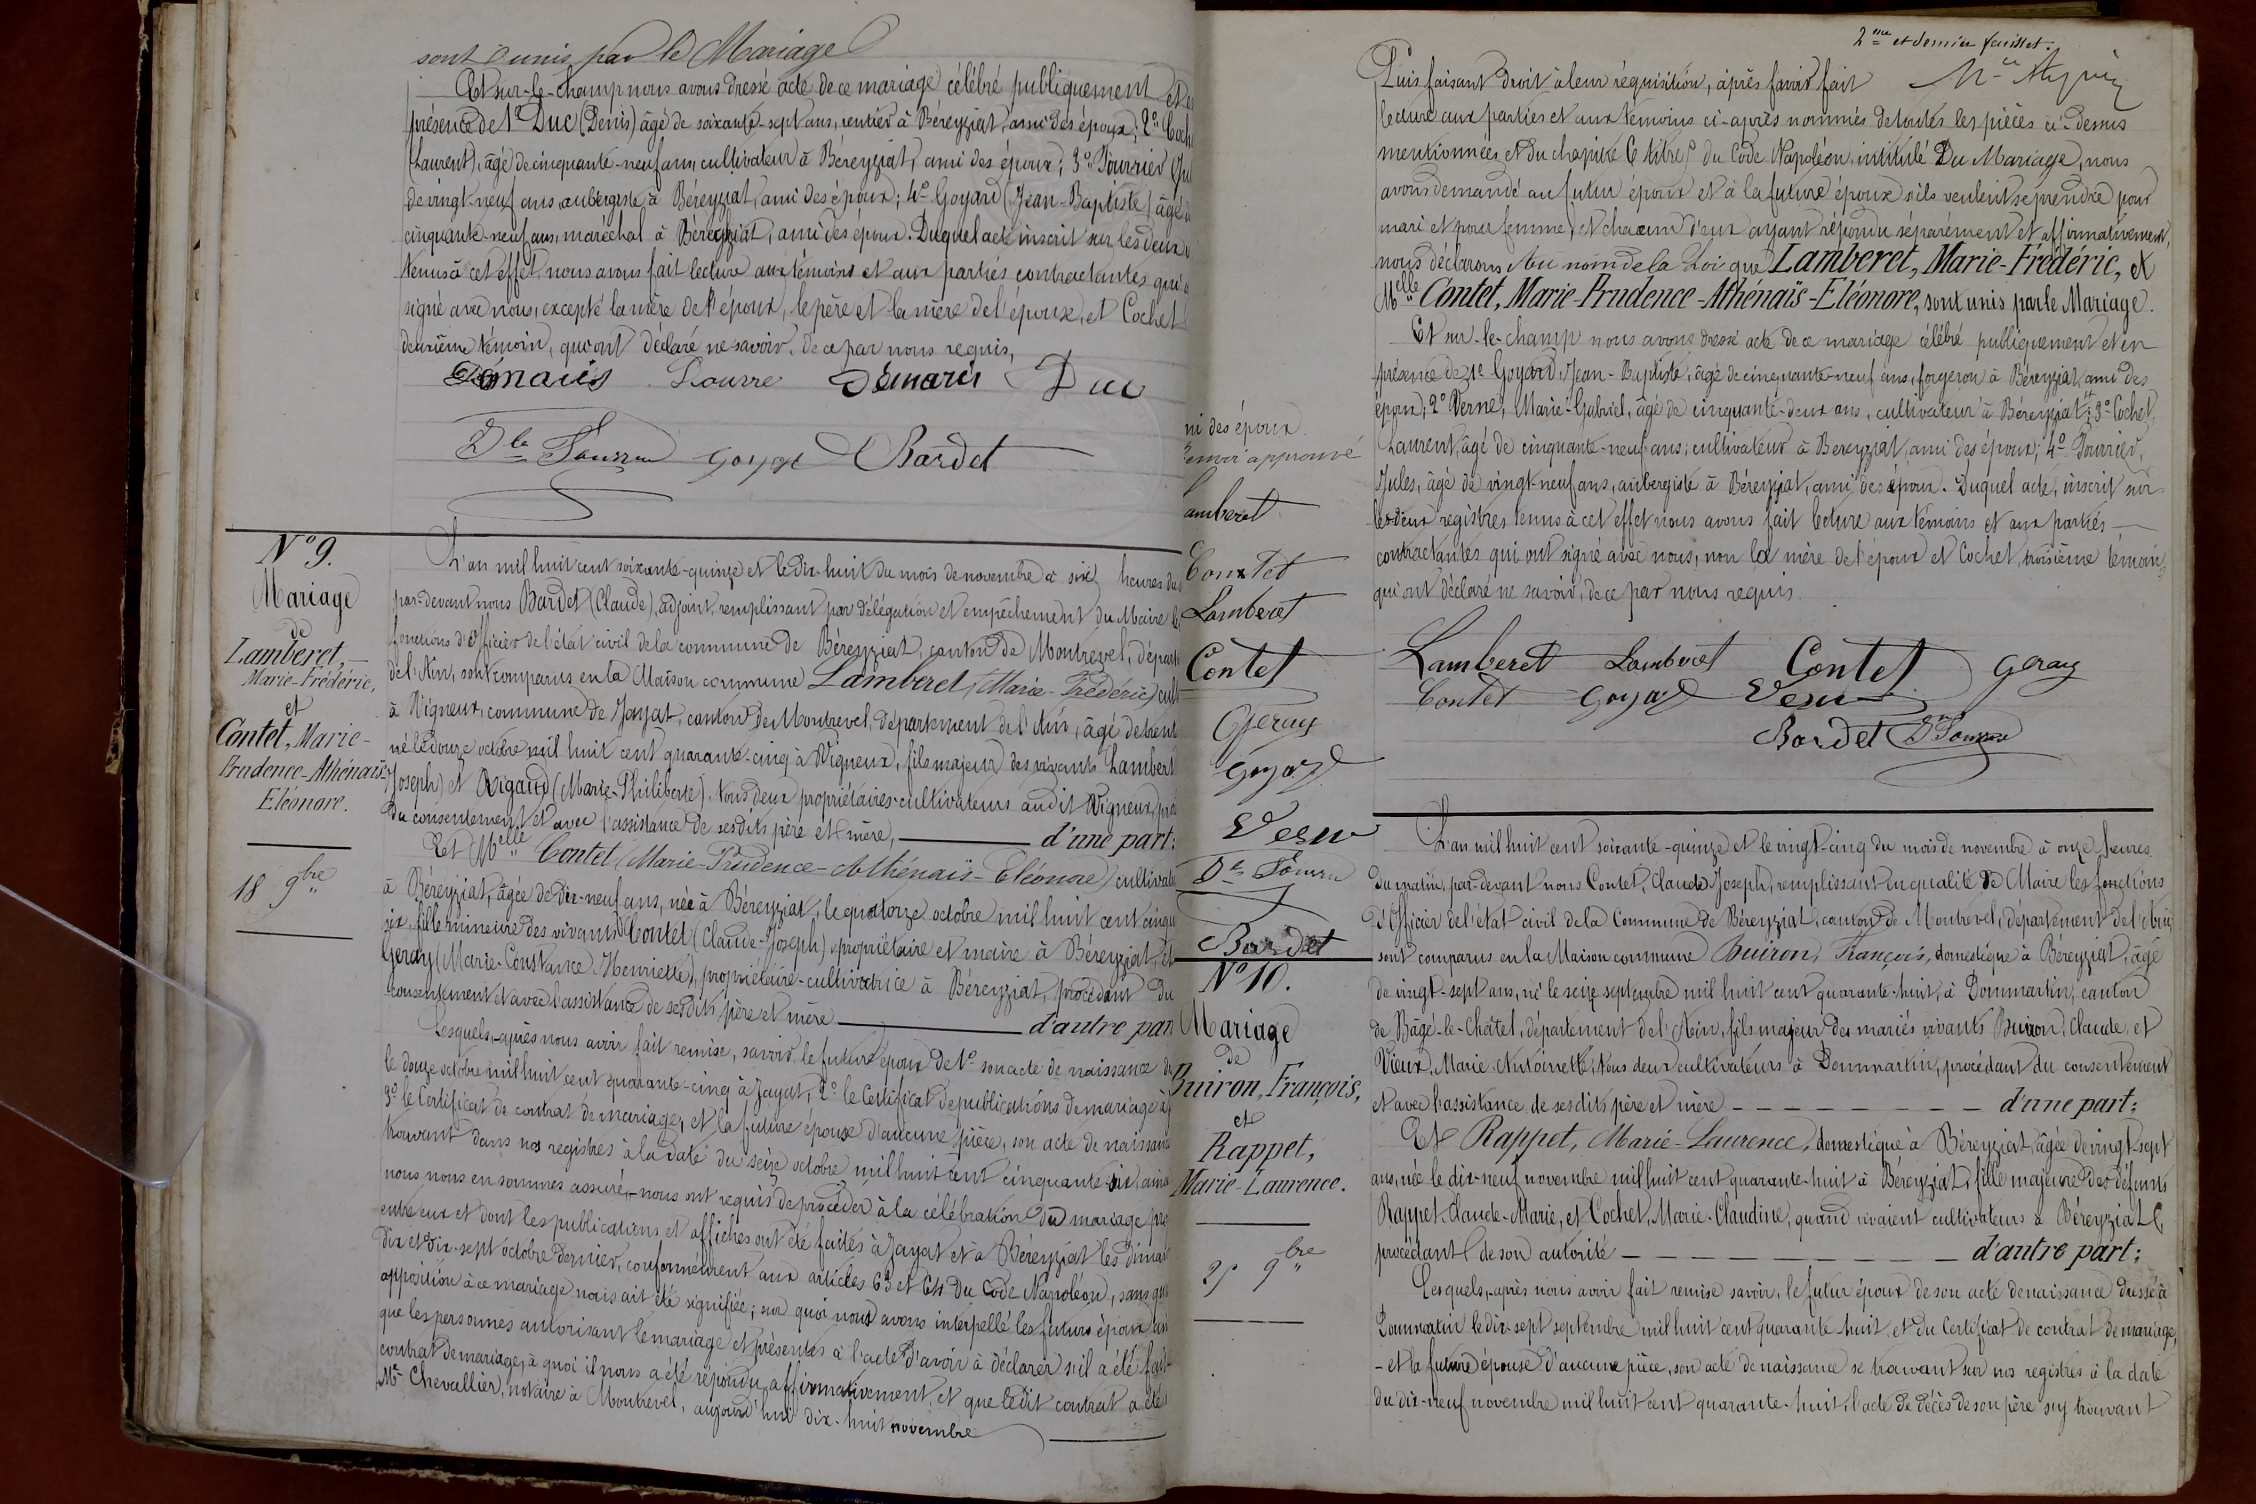 sont unis par le Mariage
Et sur-le-champ nous avons dressé acte de ce mariage célébré publiquement et en
présence de 1° Duc (Denis) âgé de soixante-sept ans, rentier à Béreyziat, ami des époux; 2° Coch
(Laurent), âgé de cinquante-neuf ans, cultivateur à Béreyziat, ami des époux; 3° Fourrier (Ju
de vingt-neuf ans, aubergiste, à Béreyziat, ami des époux; 4° Goyard (Jean-Baptiste) âgé
cinquante-neuf ans, maréchal à Béreyziat, ami des époux. Duquel acte inscrit sur les deux
tenus à cet effet, nous avons fait lecture aux témoins et aux parties contractantes qui
signé avec nous, excepté la mère de l'époux, le père et la mère de l'épouse, et Cochet
deuxième témoin, qui ont déclaré ne savoir, de ce par nous requis,
Duc
Goyard Bardet
N° 9.
Mariage
de
Lamberet,
Marie-Frédéric,
et
Contet, Marie-
Prudence-Athénaïs
Eléonore.
18 9bre
L'an mil huit cent soixante-quinze et le dix-huit du mois de novembre à six heures du
par-devant nous Bardet (Claude), adjoint remplissant par délégation et empêchement du Maire le
fonctions d'Officier de l'état civil de la commune de Béreyziat, canton de Montrevel, départ
de l'Ain, sont comparus en la Maison commune Lamberet (Marie-Frédéric) cult
à Vigneux, commune de Jayat, canton de Montrevel, département de l'Ain, âgé de trent
né le douze octobre mil huit cent quarante-cinq à Vigneux, fils majeur des vivants Lamberet
(Joseph) et Rigaud (Marie-Philiberte), tous deux propriétaires-cultivateurs audit Vigneux, pro
du consentement et avec l'assistance de ses dits père et mère, d'une part:
Et Melle Contet (Marie-Prudence-Athénaïs-Eléonore) cultivat
à Béreyziat, âgée de dix-neuf ans, née à Béreyziat, le quatorze octobre mil huit cent cinqu
six, fille mineure des vivants Contet (Claude-Joseph) propriétaire et maire à Béreyziat, et
Geray (Marie-Constance Henriette), propriétaire-cultivatrice à Béreyziat, procédant du
consentement et avec l'assistance de ses dits père et mère d'autre par
Lesquels, après nous avoir fait remise, savoir, le futur époux de 1° son acte de naissance du
le douze octobre mil huit cent quarante-cinq à Jayat, 2° le Certificat de publications de mariage à J
3° le Certificat de contrat de mariage, et la future épouse d'aucune pièce, son acte de naissance
trouvant dans nos registres à la date du seize octobre mil huit cent cinquante six, ains
nous nous en sommes assuré,-nous ont requis de procéder à la célébration du mariage pro
entre eux et dont les publications et affiches ont été faites à Jayat et à Béreyziat les diman
dix et dix-sept octobre dernier, conformément aux articles 63 et 64 du Code Napoléon, sans qu
opposition à ce mariage nous ait été signifiée; sur quoi nous avons interpellé les futurs époux ain
que les personnes autorisant le mariage et présentes à l'acte d'avoir à déclarer s'il a été fait
contrat de mariage, à quoi il nous a été répondu affirmativement, et que ledit contrat a été
Me Chevallier, notaire à Montrevel, aujourd'hui dix-huit novembre
2me et dernier feuillet.
Puis faisant droit à leur réquisition, après avoir fait
lecture aux parties et aux témoins ci-après nommés de toutes les pièces ci-dessus
mentionnées et du chapitre 6 titre 5 du Code Napoléon, intitulé Du Mariage, nous
avons demandé au futur époux et à la future épouse s'ils veulent se prendre pour
mari et pour femme, et chacun d'eux ayant répondu séparément et affirmativement,
nous déclarons Au nom de la Loi que Lamberet, Marie-Frédéric, et
Melle Contet, Marie-Prudence-Athénaïs-Eléonore, sont unis par le Mariage.
Et sur-le-champ nous avons dressé acte de ce mariage célébré publiquement et en
présence de 1° Goyard, Jean-Baptiste, âgé de cinquante-neuf ans, forgeron à Béreyziat, ami des
époux; 2° Verne, Marie-Gabriel, âgé de cinquante-deux ans, cultivateur à Béreyziat; 3° Cochet,
Laurent, âgé de cinquante-neuf ans, cultivateur à Béreyziat, ami des époux; 4° Fourrier,
Jules, âgé de vingt-neuf ans, aubergiste à Béreyziat, ami des époux. Duquel acte, inscrit sur
les deux registres tenus à cet effet nous avons fait lecture aux témoins et aux parties
contractantes qui ont signé avec nous, non la mère de l'époux et Cochet, troisième témoin,
qui ont déclaré ne savoir, de ce par nous requis.
Lamberet Lamberet Contet Geray
Contet Goyard
Bardet
mi des époux
Renvoi approuvé
Lamberet
Contet
Lamberet
Contet
Geray
Goyard
Bardet
N° 10.
Mariage
de
Buiron, François,
et
Rappet,
Marie-Laurence.
25 9bre
L'an mil huit cent soixante-quinze et le vingt-cinq du mois de novembre à onze heures
du matin, par-devant nous Contet, Claude Joseph, remplissant en qualité de Maire les fonctions
d'Officier de l'état civil de la Commune de Béreyziat, canton de Montrevel, département de l'Ain,
sont comparus en la Maison commune Buiron, François, domestique à Béreyziat, âgé
de vingt-sept ans, né le seize septembre mil huit cent quarante-huit, à Dommartin, canton
de Bâgé-le-Châtel, département de l'Ain, fils majeur des mariés vivants Buiron, Claude, et
Vieux, Marie-Antoinette, tous deux cultivateurs à Dommartin, procédant du consentement
et avec l'assistance de ses dits père et mère d'une part:
Et Rappet, Marie-Laurence, domestique à Béreyziat, âgée de vingt-sept
ans, née le dix-neuf novembre mil huit cent quarante-huit à Béreyziat, fille majeure des défunts
Rappet, Claude-Marie, et Cochet, Marie-Claudine, quand vivaient cultivateurs à Béreyziat,
procédant de son autorité d'autre part:
Lesquels, après nous avoir fait remise savoir, le futur époux de son acte de naissance dressé à
Dommartin le dix-sept septembre mil huit cent quarante-huit, et du Certificat de contrat de mariage,
- et la future épouse d'aucune pièce, son acte de naissance se trouvant sur nos registres à la date
du dix-neuf novembre mil huit cent quarante-huit, l'acte de décès de son père s'y trouvant